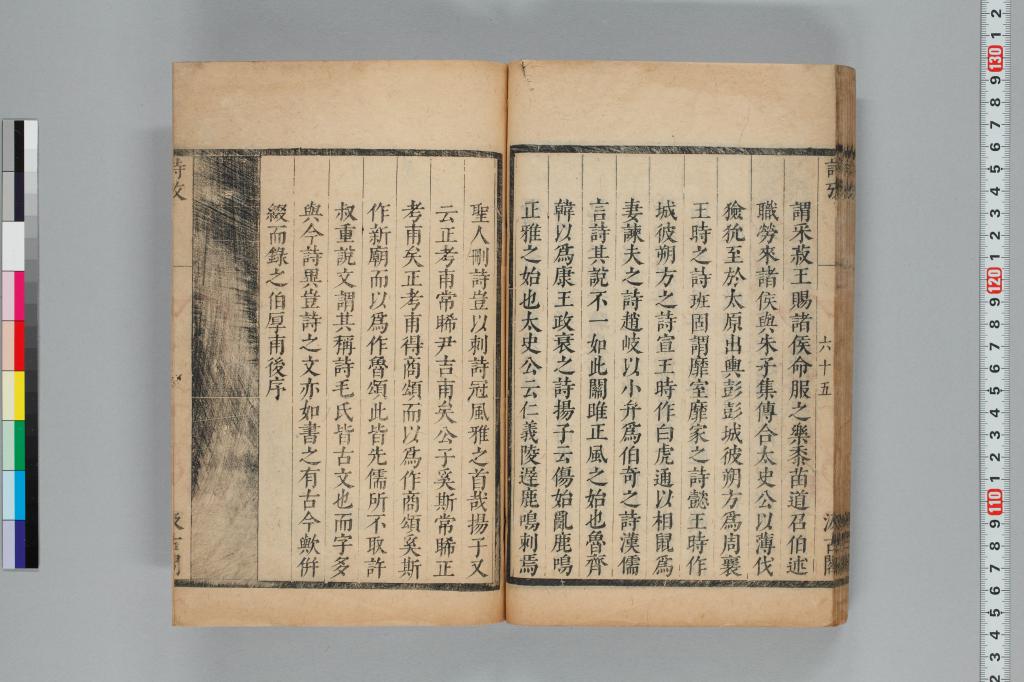 謂采菽王賜諸侯命服之樂黍苗道召伯述
職勞來諸侯與朱子集傳合太史公以薄伐
獫狁至於太原出輿彭彭城彼朔方爲周襄
王時之詩班固謂靡室靡家之詩懿王時作
城彼朔方之詩宣王時作白虎通以相鼠爲
妻諫夫之詩趙岐以小弁爲伯奇之詩漢儒
言詩其說不一如此關雎正風之始也魯齊
韓以爲康王政衰之詩揚子云傷始亂鹿鳴
正雅之始也太史公云仁義陵遲鹿鳴刺焉
聖人刪詩豈以刺詩冠風雅之首哉揚子又
云正考甫常睎尹吉甫矣公子奚斯常睎正
考甫矣正考甫得商頌而以爲作商頌奚斯
作新廟而以爲作魯頌此皆先儒所不取許
叔重說文謂其稱詩毛氏皆古文也而字多
與今詩異豈詩之文亦如書之有古今歟倂
綴而錄之伯厚甫後序
六十五
詩攷